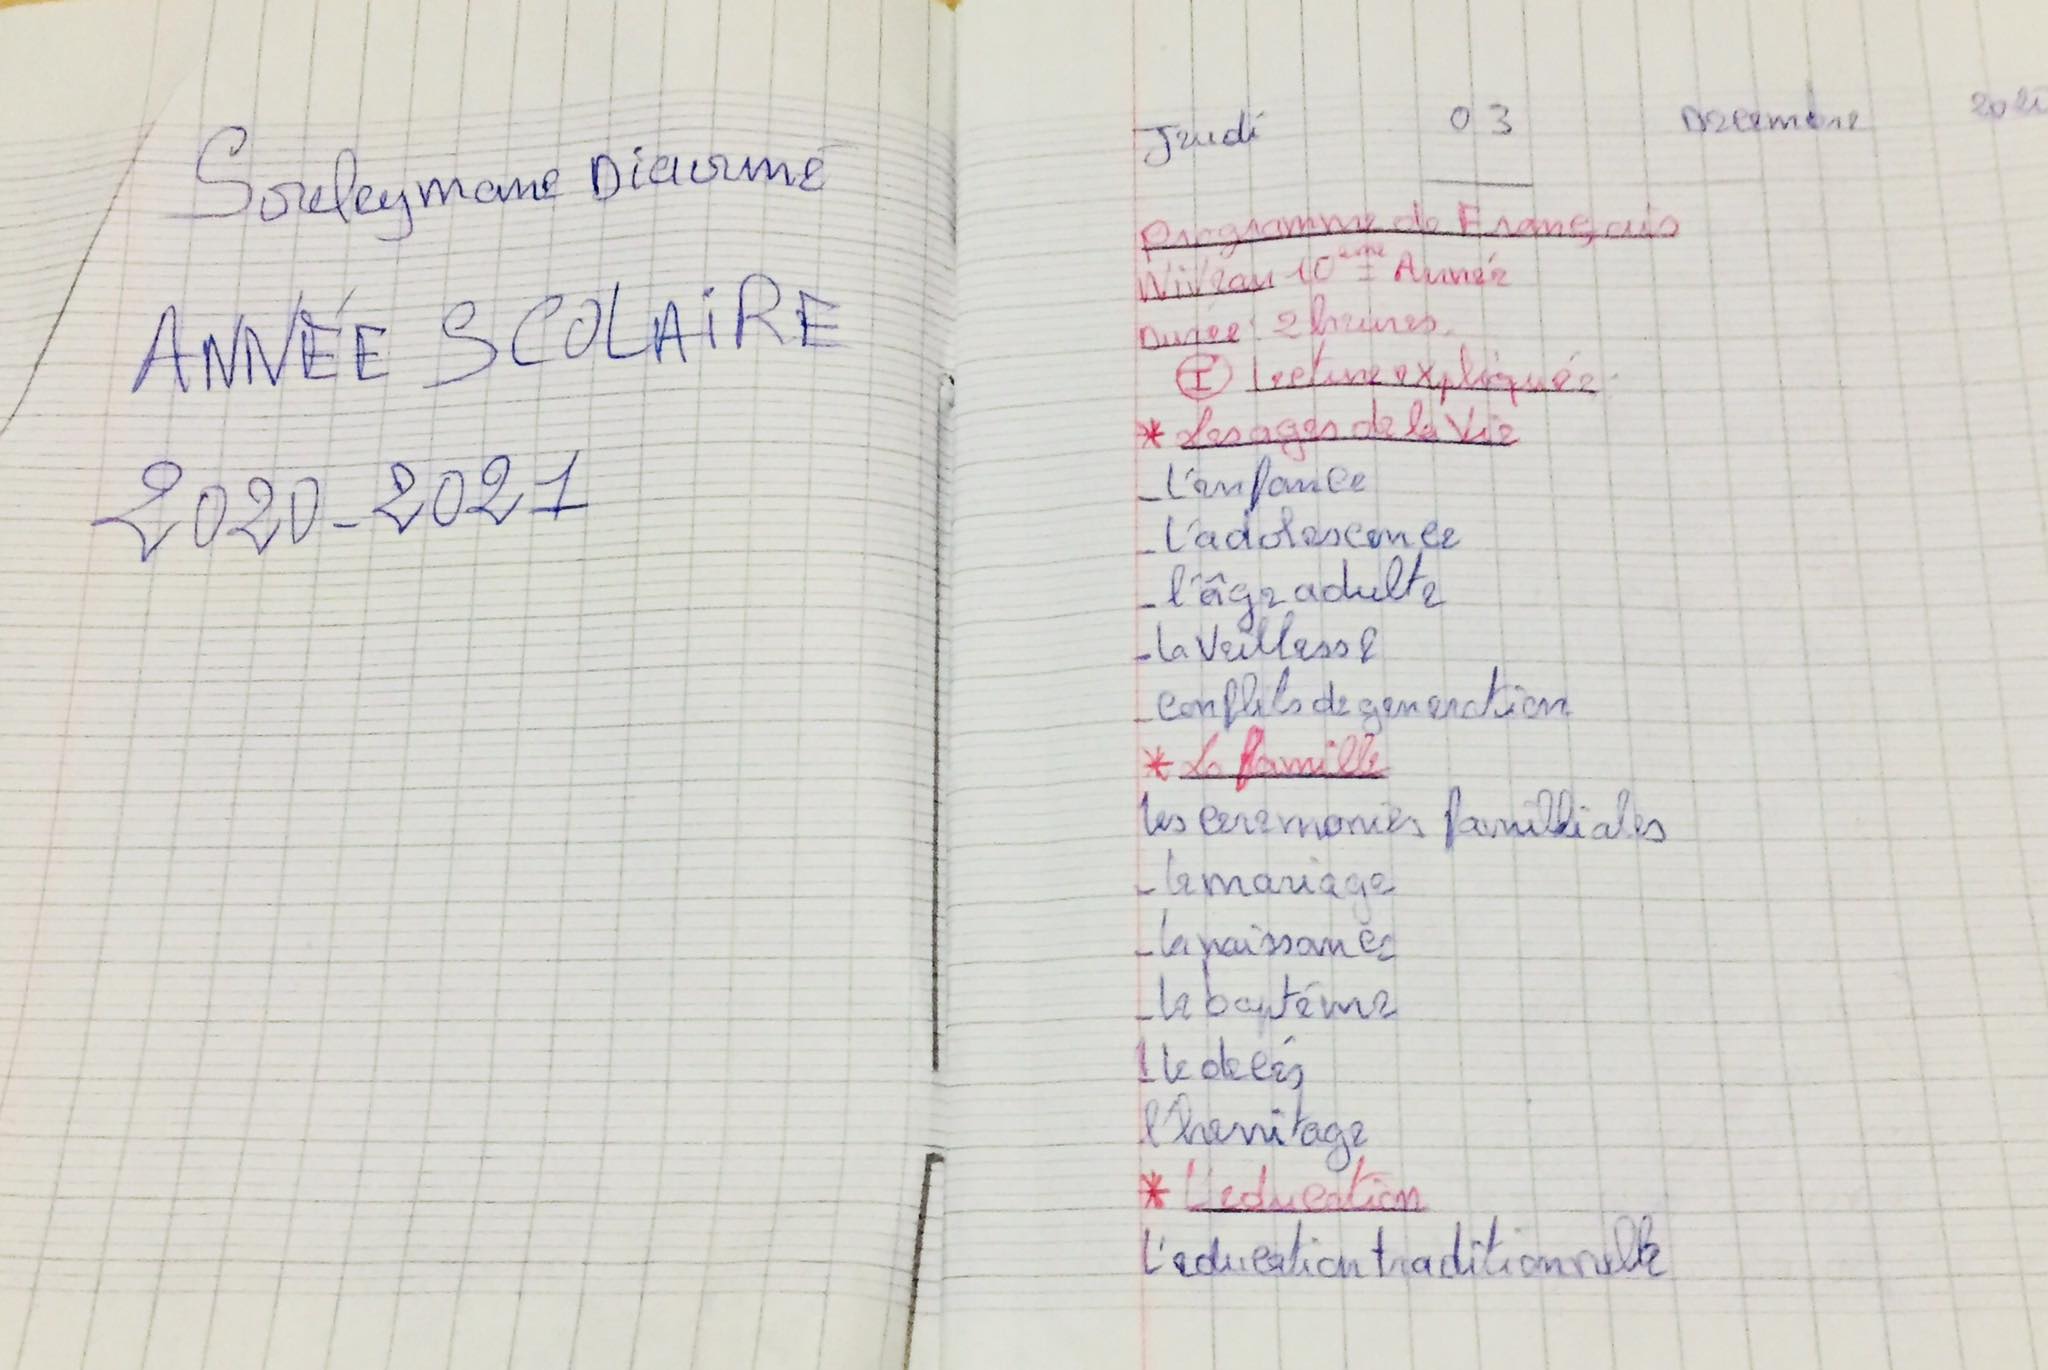 Souleymane Diaoune
ANNÉE SCOLAIRE
2020-2021
Jeudi 03 Decembre 2020
Programme de Français
Niveau 10ème Année
Durée: 2 heures.
I Lecture expliquée
* Les ages de la Vie
- L'enfance
- L'adolescence
- l'âge adulte
- la Veillesse
- conflits de generation
* La famille
les ceremonies familliales
- le mariage
- la naissance
- le baptéme
- le decés
l'heritage
* L'education
L'education traditionnelle